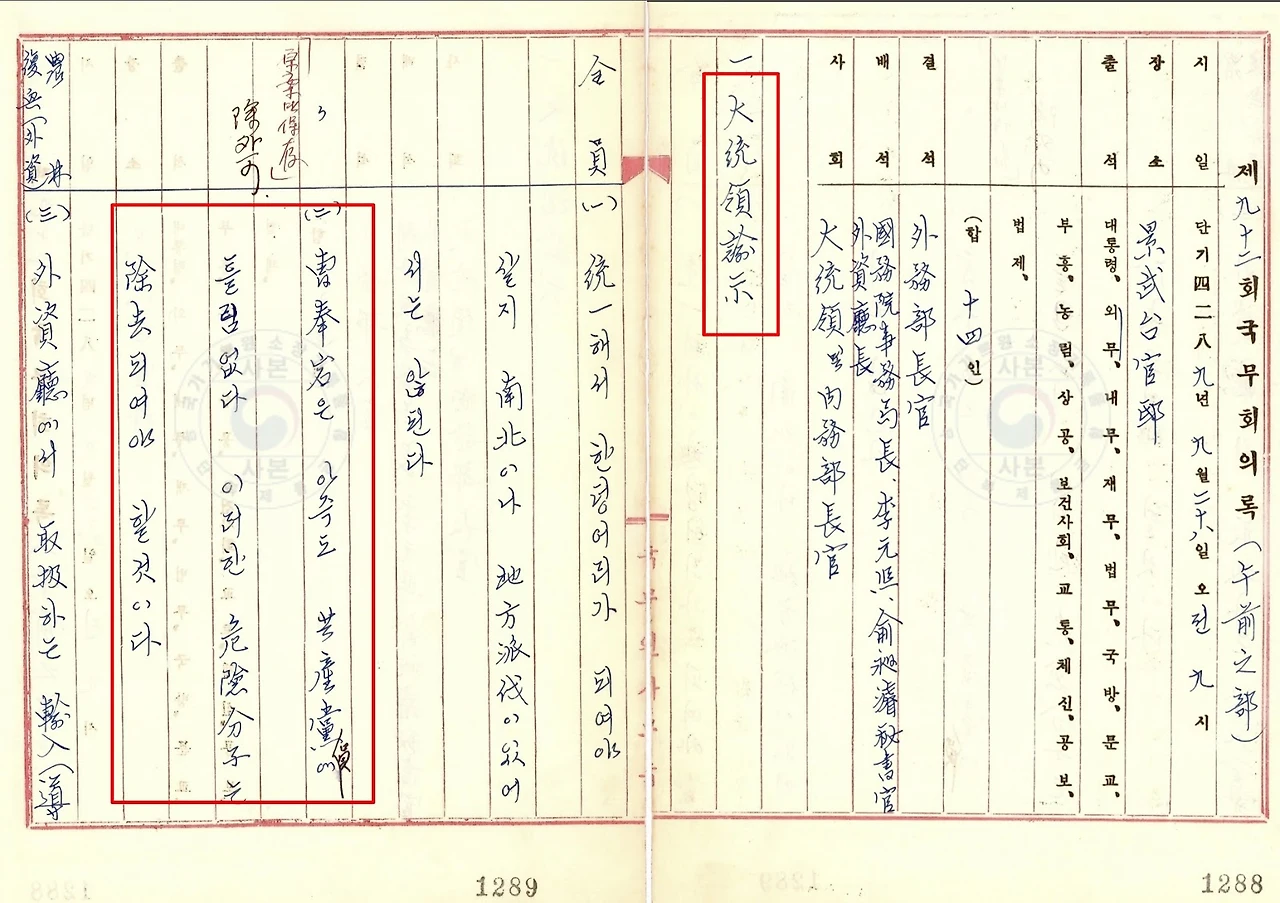 제九十二회 국무회의록 (午前之部)
시일 단기四二八九년 九월二十八일 오전 九시
장소 景武台官邸
출석 대통령、외무、내무、재무、법무、국방、문교、
부흥、농림、상공、보건사회、교통、체신、공보、
법제、
(합 十四인)
결석 外務部長官
배석 國務院事務局長、李元熙、兪昶濬秘書官
外資廳長
사회 大統領 및 內務部長官
一、大統領諭示
全員 (一) 統一해서 한덩어리가 되여야
살지 南北이나 地方派伐이 있어
서는 않된다
〃 (二) 曺奉岩은 아죽도 共産黨員에
틀림없다 이러한 危險分子는
除去되여야 할것이다
草案만保存」
除外할 것.
農林
復興(外資)
(三) 外資廳에서 取扱하는 輸入(導
1289
1288
사본
사본